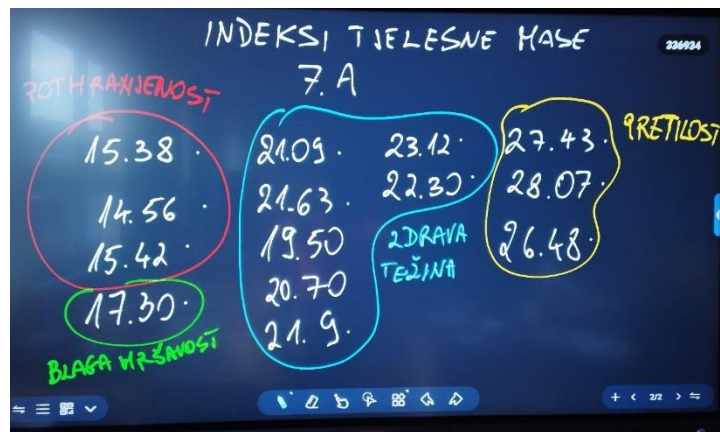 INDEKSI TJELESNE MASE
7. A
226934
POTHRANJENOST
15.38.
14.56.
15.42.
17.30.
BLAGA MRŠAVOST
21.09.
21.63.
19.50
20.70
21.9.
23.12.
22.30.
ZDRAVA
TEŽINA
27.43.
28.07.
26.48.
PRETILOST
2/2